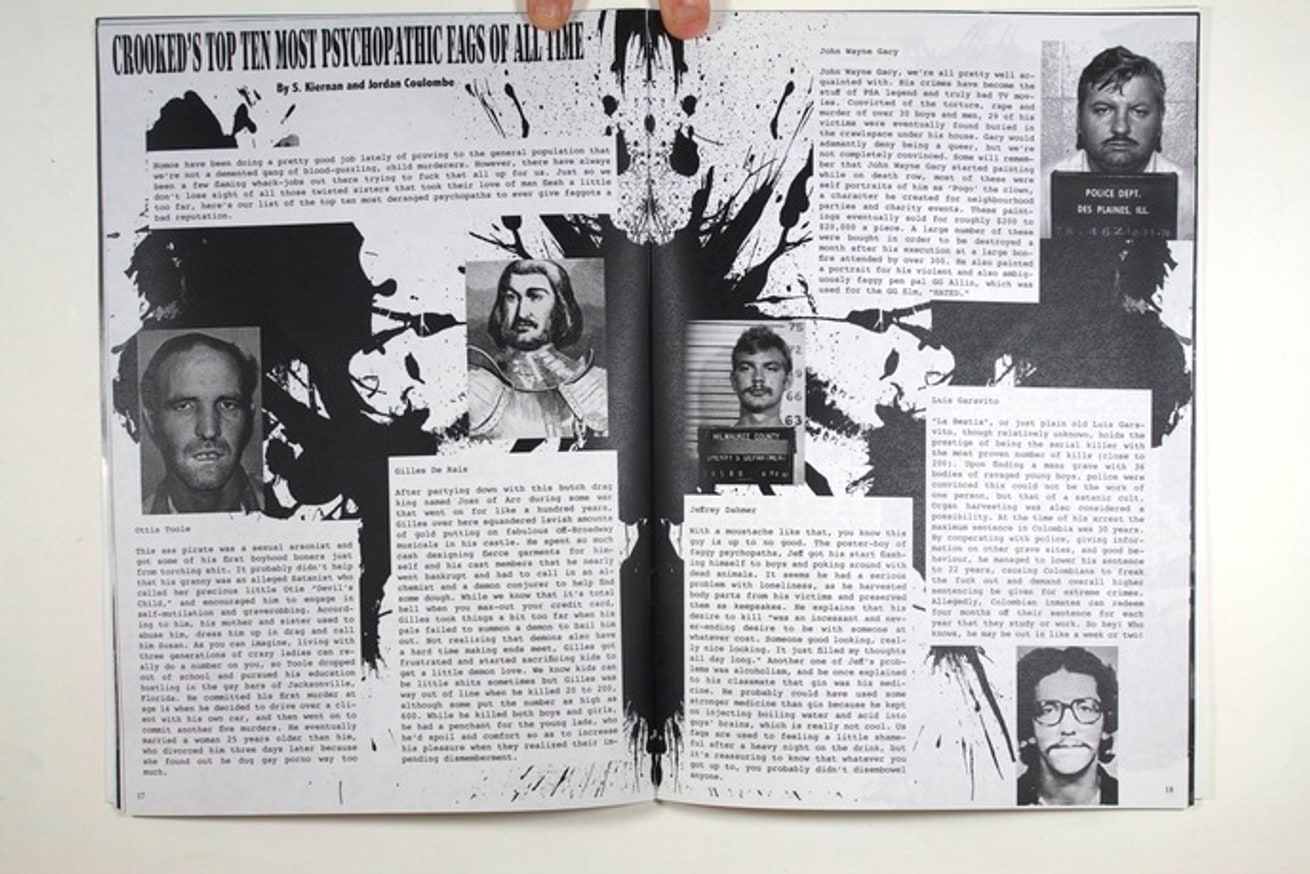 CROOKED'S TOP TEN MOST PSYCHOPATHIC FAGS OF ALL TIME
By S. Kiernan and Jordan Coulombe
Homos have been doing a pretty good job lately of proving to the general population that
we're not a demented gang of blood-guzzling, child murderers. However, there have always
been a few flaming whack-jobs out there trying to fuck that all up for us. Just so we
don't lose sight of all those twisted sisters that took their love of man flesh a little
too far, here's our list of the top ten most deranged psychopaths to ever give faggots a
bad reputation.
Ottis Toole
This ass pirate was a sexual arsonist and
got some of his first boyhood boners just
from torching shit. It probably didn't help
that his granny was an alleged Satanist who
called her precious little Otie "Devil's
Child," and encouraged him to engage in
self-mutilation and graverobbing. Accord-
ing to him, his mother and sister used to
abuse him, dress him up in drag and call
him Susan. As you can imagine, living with
three generations of crazy ladies can re-
ally do a number on you, so Toole dropped
out of school and pursued his education
hustling in the gay bars of Jacksonville,
Florida. He committed his first murder at
age 14 when he decided to drive over a cli-
ent with his own car, and then went on to
commit another five murders. He eventually
married a woman 25 years older than him,
who divorced him three days later because
she found out he dug gay porno way too
much.
17
Gilles De Rais
After partying down with this butch drag
king named Joan of Arc during some war
that went on for like a hundred years,
Gilles over here squandered lavish amounts
of gold putting on fabulous off-Broadway
musicals in his castle. He spent so much
cash designing fierce garments for him-
self and his cast members that he nearly
went bankrupt and had to call in an al-
chemist and a demon conjurer to help find
some dough. While we know that it's total
hell when you max-out your credit card,
Gilles took things a bit too far when his
pals failed to summon a demon to bail him
out. Not realising that demons also have
a hard time making ends meet, Gilles got
frustrated and started sacrificing kids to
get a little demon love. We know kids can
be little shits sometimes but Gilles was
way out of line when he killed 20 to 200,
although some put the number as high as
600. While he killed both boys and girls,
he had a penchant for the young lads, who
he'd spoil and comfort so as to increase
his pleasure when they realized their im-
pending dismemberment.
75
72
9
66
63
MILWAUKEE COUNTY
SHERIFF'S DEPARTMENT
Jeffrey Dahmer
With a moustache like that, you know this
guy is up to no good. The poster-boy of
faggy psychopaths, Jeff got his start flash-
ing himself to boys and poking around with
dead animals. It seems he had a serious
problem with loneliness, as he harvested
body parts from his victims and preserved
them as keepsakes. He explains that his
desire to kill "was an incessant and nev-
er-ending desire to be with someone at
whatever cost. Someone good looking, real-
ly nice looking. It just filled my thoughts
all day long." Another one of Jeff's prob-
lems was alcoholism, and he once explained
to his classmate that gin was his medi-
cine. He probably could have used some
stronger medicine than gin because he kept
on injecting boiling water and acid into
guys' brains, which is really not cool. Us
fags are used to feeling a little shame-
ful after a heavy night on the drink, but
it's reassuring to know that whatever you
got up to, you probably didn't disembowel
anyone.
John Wayne Gacy
John Wayne Gacy, we're all pretty well ac-
quainted with. His crimes have become the
stuff of PSA legend and truly bad TV mov-
ies. Convicted of the torture, rape and
murder of over 30 boys and men, 29 of his
victims were eventually found buried in
the crawlspace under his house. Gacy would
adamantly deny being a queer, but we're
not completely convinced. Some will remem-
ber that John Wayne Gacy started painting
while on death row, most of these were
self portraits of him as 'Pogo' the clown,
a character he created for neighbourhood
parties and charity events. These paint-
ings eventually sold for roughly $200 to
$20,000 a piece. A large number of these
were bought in order to be destroyed a
month after his execution at a large bon-
fire attended by over 300. He also painted
a portrait for his violent and also ambig-
uously faggy pen pal GG Allis, which was
used for the GG film, "HATED."
POLICE DEPT.
DES PLAINES, ILL.
Luis Garavito
"La Bestia", or just plain old Luis Gara-
vito, though relatively unknown, holds the
prestige of being the serial killer with
the most proven number of kills (close to
200). Upon finding a mass grave with 36
bodies of ravaged young boys, police were
convinced this could not be the work of
one person, but that of a satanic cult.
Organ harvesting was also considered a
possibility. At the time of his arrest the
maximum sentence in Colombia was 30 years,
by cooperating with police, giving infor-
mation on other grave sites, and good be-
haviour, he managed to lower his sentence
to 22 years, causing Colombians to freak
the fuck out and demand overall higher
sentencing be given for extreme crimes.
Allegedly, Colombian inmates can redeem
four months off their sentence for each
year that they study or work. So hey! Who
knows, he may be out in like a week or two!
18